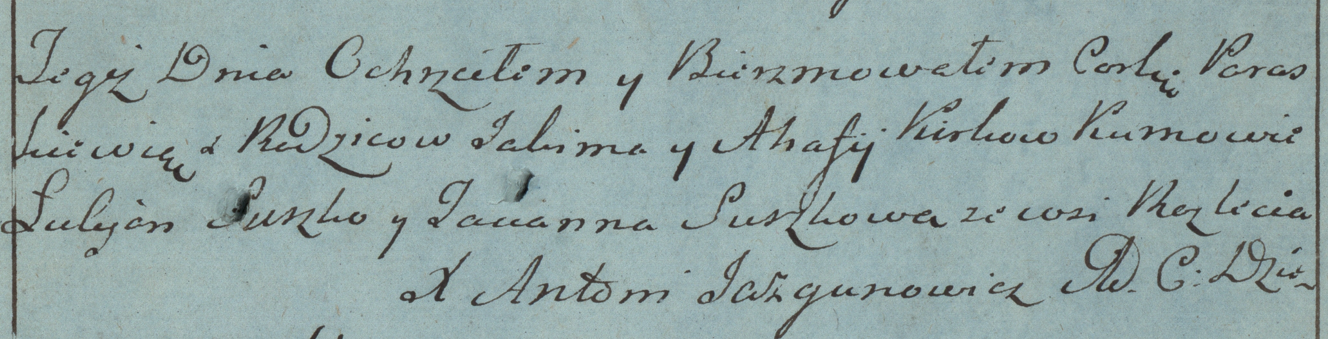 Tegoż Dnia Ochrzciłem y Bierzmowałem Corkę Paras
kiewię z Rodzicow Jakima y Ahafij Kirkow Kumowie
Julijan Suszko y Jauanna Suszkowa ze wsi Rozlicia
X Antoni Jażgunowicz P. C: Dzie